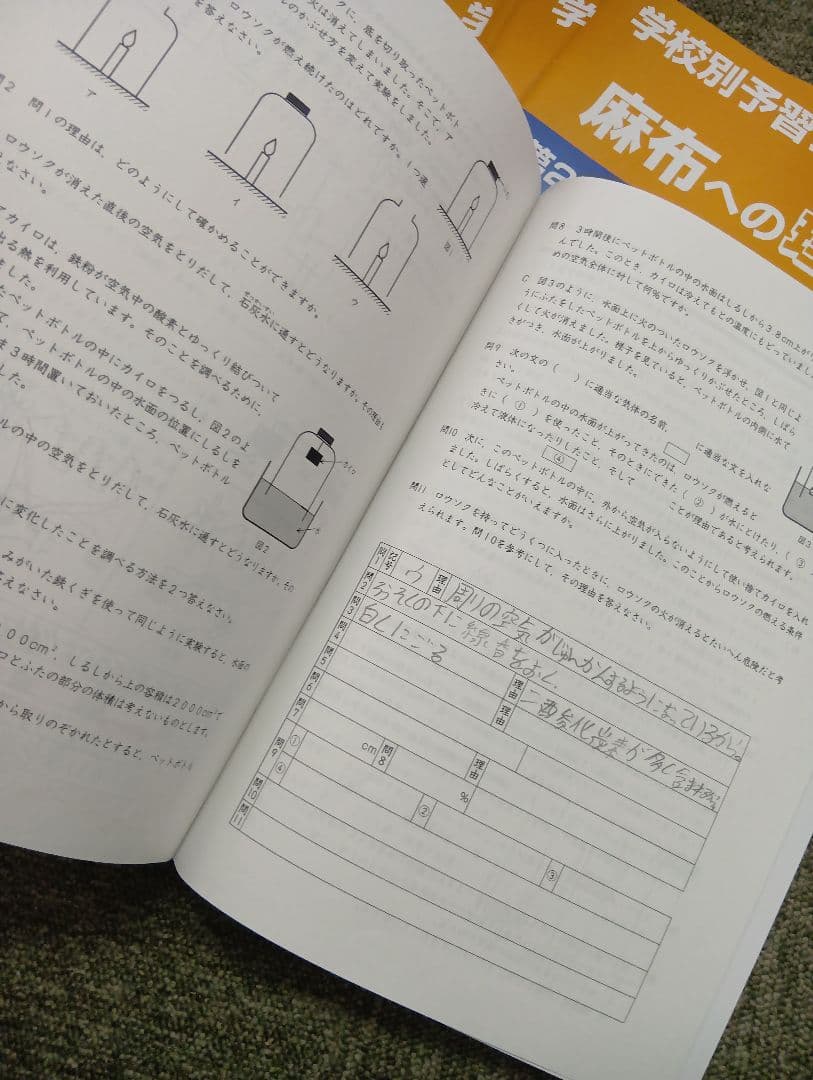 学校別予習
麻布への
第2
学
クに、底を切り取ったペットボト
火は消えてしまいました。そこで、ア
しのかぶせ方を変えて実験をしました。
ロウソクが燃え続けたのはどれですか。1つ選
を答えなさい。
ア
イ
ウ
図1
問2 問1の理由は、どのようにして確かめることができますか。
ロウソクが消えた直後の空気をとりだして、石灰水に通すとどうなりますか。その理由も
なさい。
てカイロは、鉄粉が空気中の酸素とゆっくり結びついて
出る熱を利用しています。そのことを調べるために、
たペットボトルの中にカイロをつるし、図2のよ
て、ペットボトルの中の水面の位置にしるしを
ま3時間置いておいたところ、ペットボトル
した。
カイロ
水
図2
ルの中の空気をとりだして、石灰水に通すとどうなりますか。その
に変化したことを調べる方法を2つ答えなさい。
みがいた鉄くぎを使って同じように実験すると、水面の
答えなさい。
00cm²、しるしから上の容積は2000cm³で
ロとふたの部分の体積は考えないものとします。
から取りのぞかれたとすると、ペットボトル
問8 3時間後にペットボトルの中の水面はしるしから3.8cm上がり
んでした。このとき、カイロは冷えてもとの温度にもどっていまし
めの空気全体に対して何%ですか。
C 図3のように、水面上に火のついたロウソクを浮かせ、図1と同じよ
うにふたをしたペットボトルを上からゆっくりかぶせたところ、しばら
くして火が消えました。様子を見ていると、ペットボトルの内側に水て
きがつき、水面が上がりました。
図3
問9 次の文の( )に適当な気体の名前、 に適当な文を入れな
さい。
ペットボトルの中の水面が上がってきたのは、ロウソクが燃えると
きに(①)を使ったこと、そのときにできた(②)が水にとけたり、(③
冷えて液体になったりしたこと、そして ④ ことが理由であると考えられます。
問10 次に、このペットボトルの中に、外から空気が入らないようにして使い捨てカイロを入れ
ました。しばらくすると、水面はさらに上がりました。このことからロウソクの燃える条件
としてどんなことがいえますか。
問11 ロウソクを持ってどうくつに入ったときに、ロウソクの火が消えるとたいへん危険だと考
えられます。問10を参考にして、その理由を答えなさい。
問1 記号 ウ 理由 周りの空気がじゅんかんするようになっているから。
問2 ろうそくの下に線香をおく。
問3 白くにごる 理由 二酸化炭素が多く含まれる
問4
問5 理由
問6
問7 cm 問8 % 理由
問9 ① ② ③
④
問10
問11